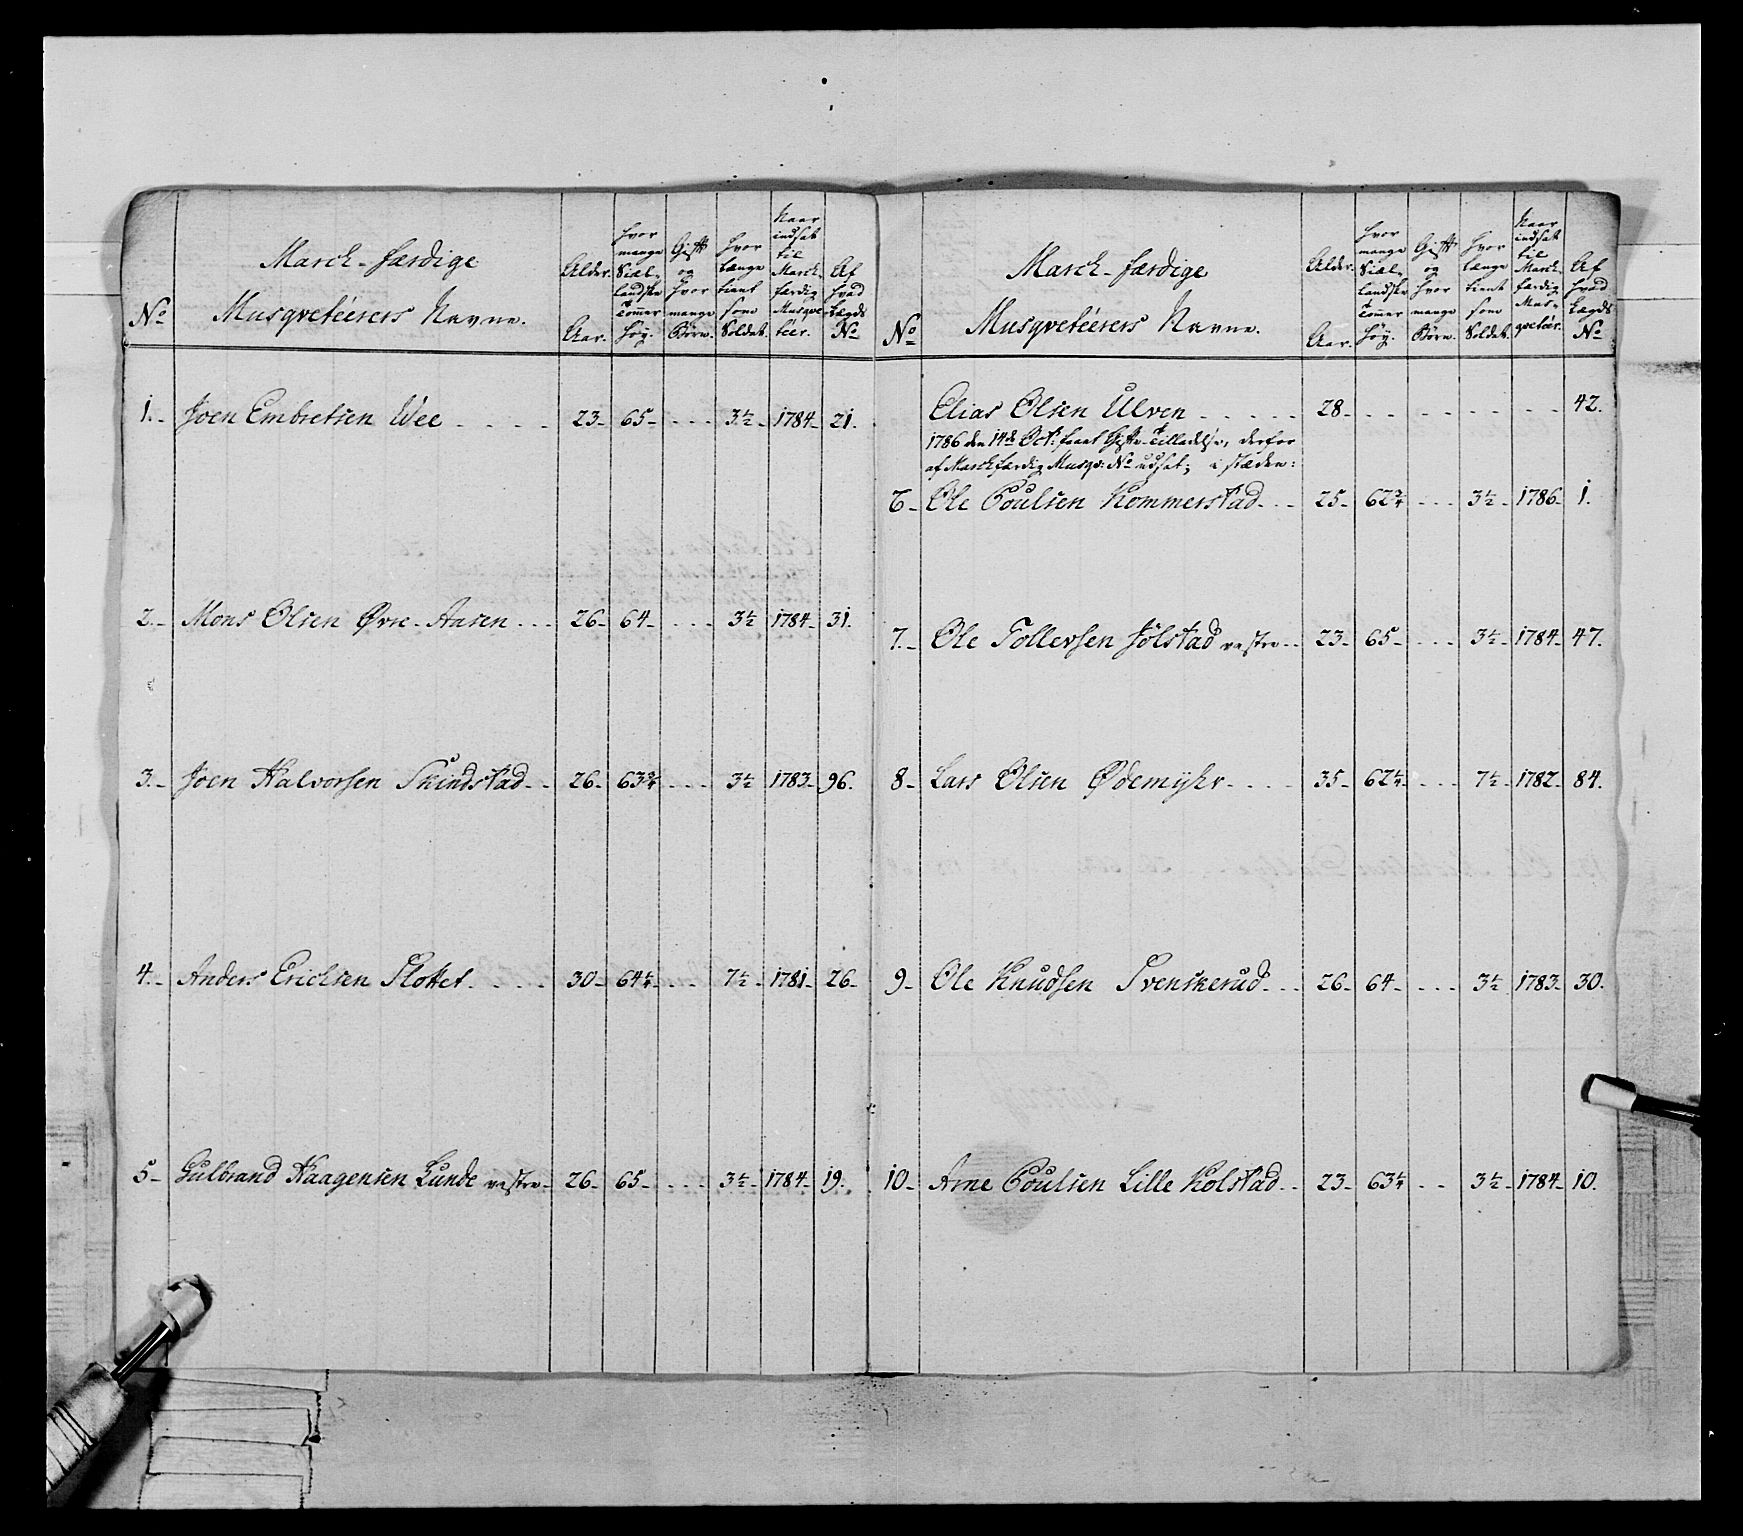 No
March-færdige
Musqveteérers Navne.
Alder.
Aar.
Hvor
mange
Siæl-
landske
Tomer
Høy.
Gift
og
Hvor
mange
Børn.
Hvor
længe
tient
som
Soldat.
Naar
indsat
til
March-
færdig
Musqve
teer.
Af
Hvad
Lægds
No
1.- Joen Embretsen Wee - - - - 23- 65- - - - 3½- 1784- 21.
2.- Mons Olsen Øvre-Aasen - - - 26- 64- - - - 3½ 1784- 31.
3.- Joen Halvorsen Skindstad - - 26- 63¾ - - - 3½ 1783- 96.
4.- Anders Erichsen Flottet - - - - 30- 64¼ - - 7½- 1781- 26-
5- Gulbrand Haagensen Lunde vestre- 26- 65- - - - 3½- 1784- 19.
No
March-færdige
Musqveteérers Navne.
Alder.
Aar.
Hvor
mange
Siæl-
landske
Tomer
Høy.
Gift
og
Hvor
mange
Børn.
Hvor
længe
tient
som
Soldat.
Naar
indsat
til
March-
færdig
Mus-
qveteér.
Af
Hvad
Lægds
No
Elias Olsen Ulven - - - - - 28- - - - - - - - - 42.
1786 den 14de Oct: faaet Gifte-Tilladelse, derfor
af Marchfærdig Musqv: No udsat; i stæden:
6- Ole Poulsen Kommerstad - - - 25- 62¾ - - - 3½- 1786- 1.
7.- Ole Tollevsen Jølstad vestre - - 23- 65- - - - 3½- 1784- 47.
8- Lars Olsen Ødemyhr - - - - 35- 62¼- - - - 7½- 1782- 84.
9- Ole Knudsen Svenskerud - - - 26- 64- - - - 3½ 1783- 30.
10- Arne Poulsen Lille Kolstad - - 23- 63¼ - - 3½ 1784- 10.